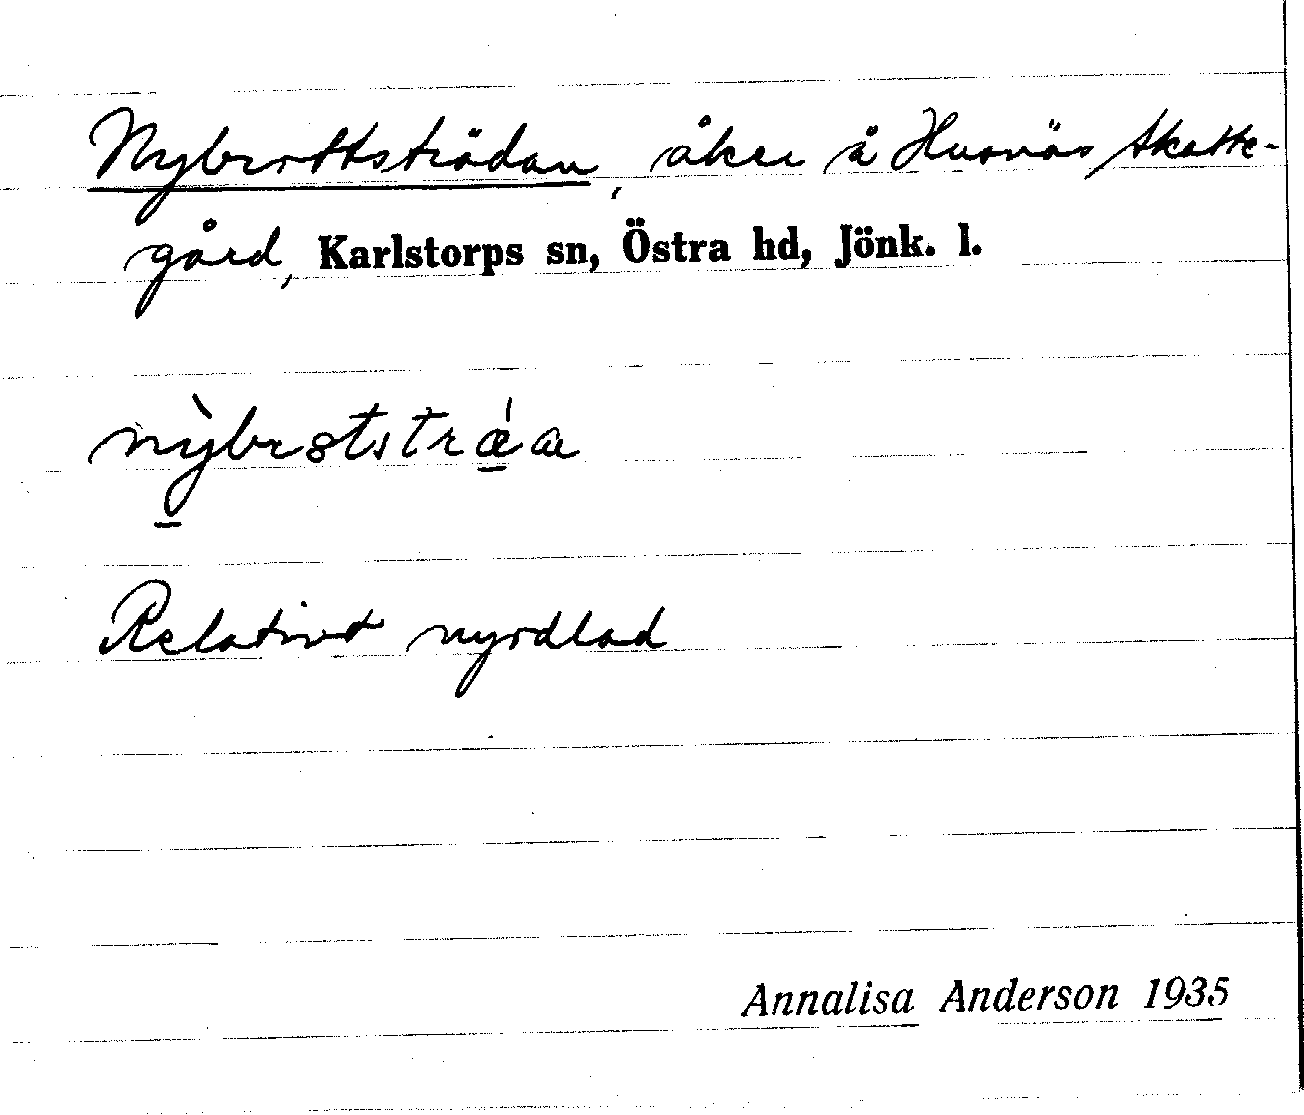 Nybrottsträdan, åker å Husnäs Skatte-
gård, Karlstorps sn, Östra hd, Jönk. l.
Relativt nyodlad
Annalisa Anderson 1935